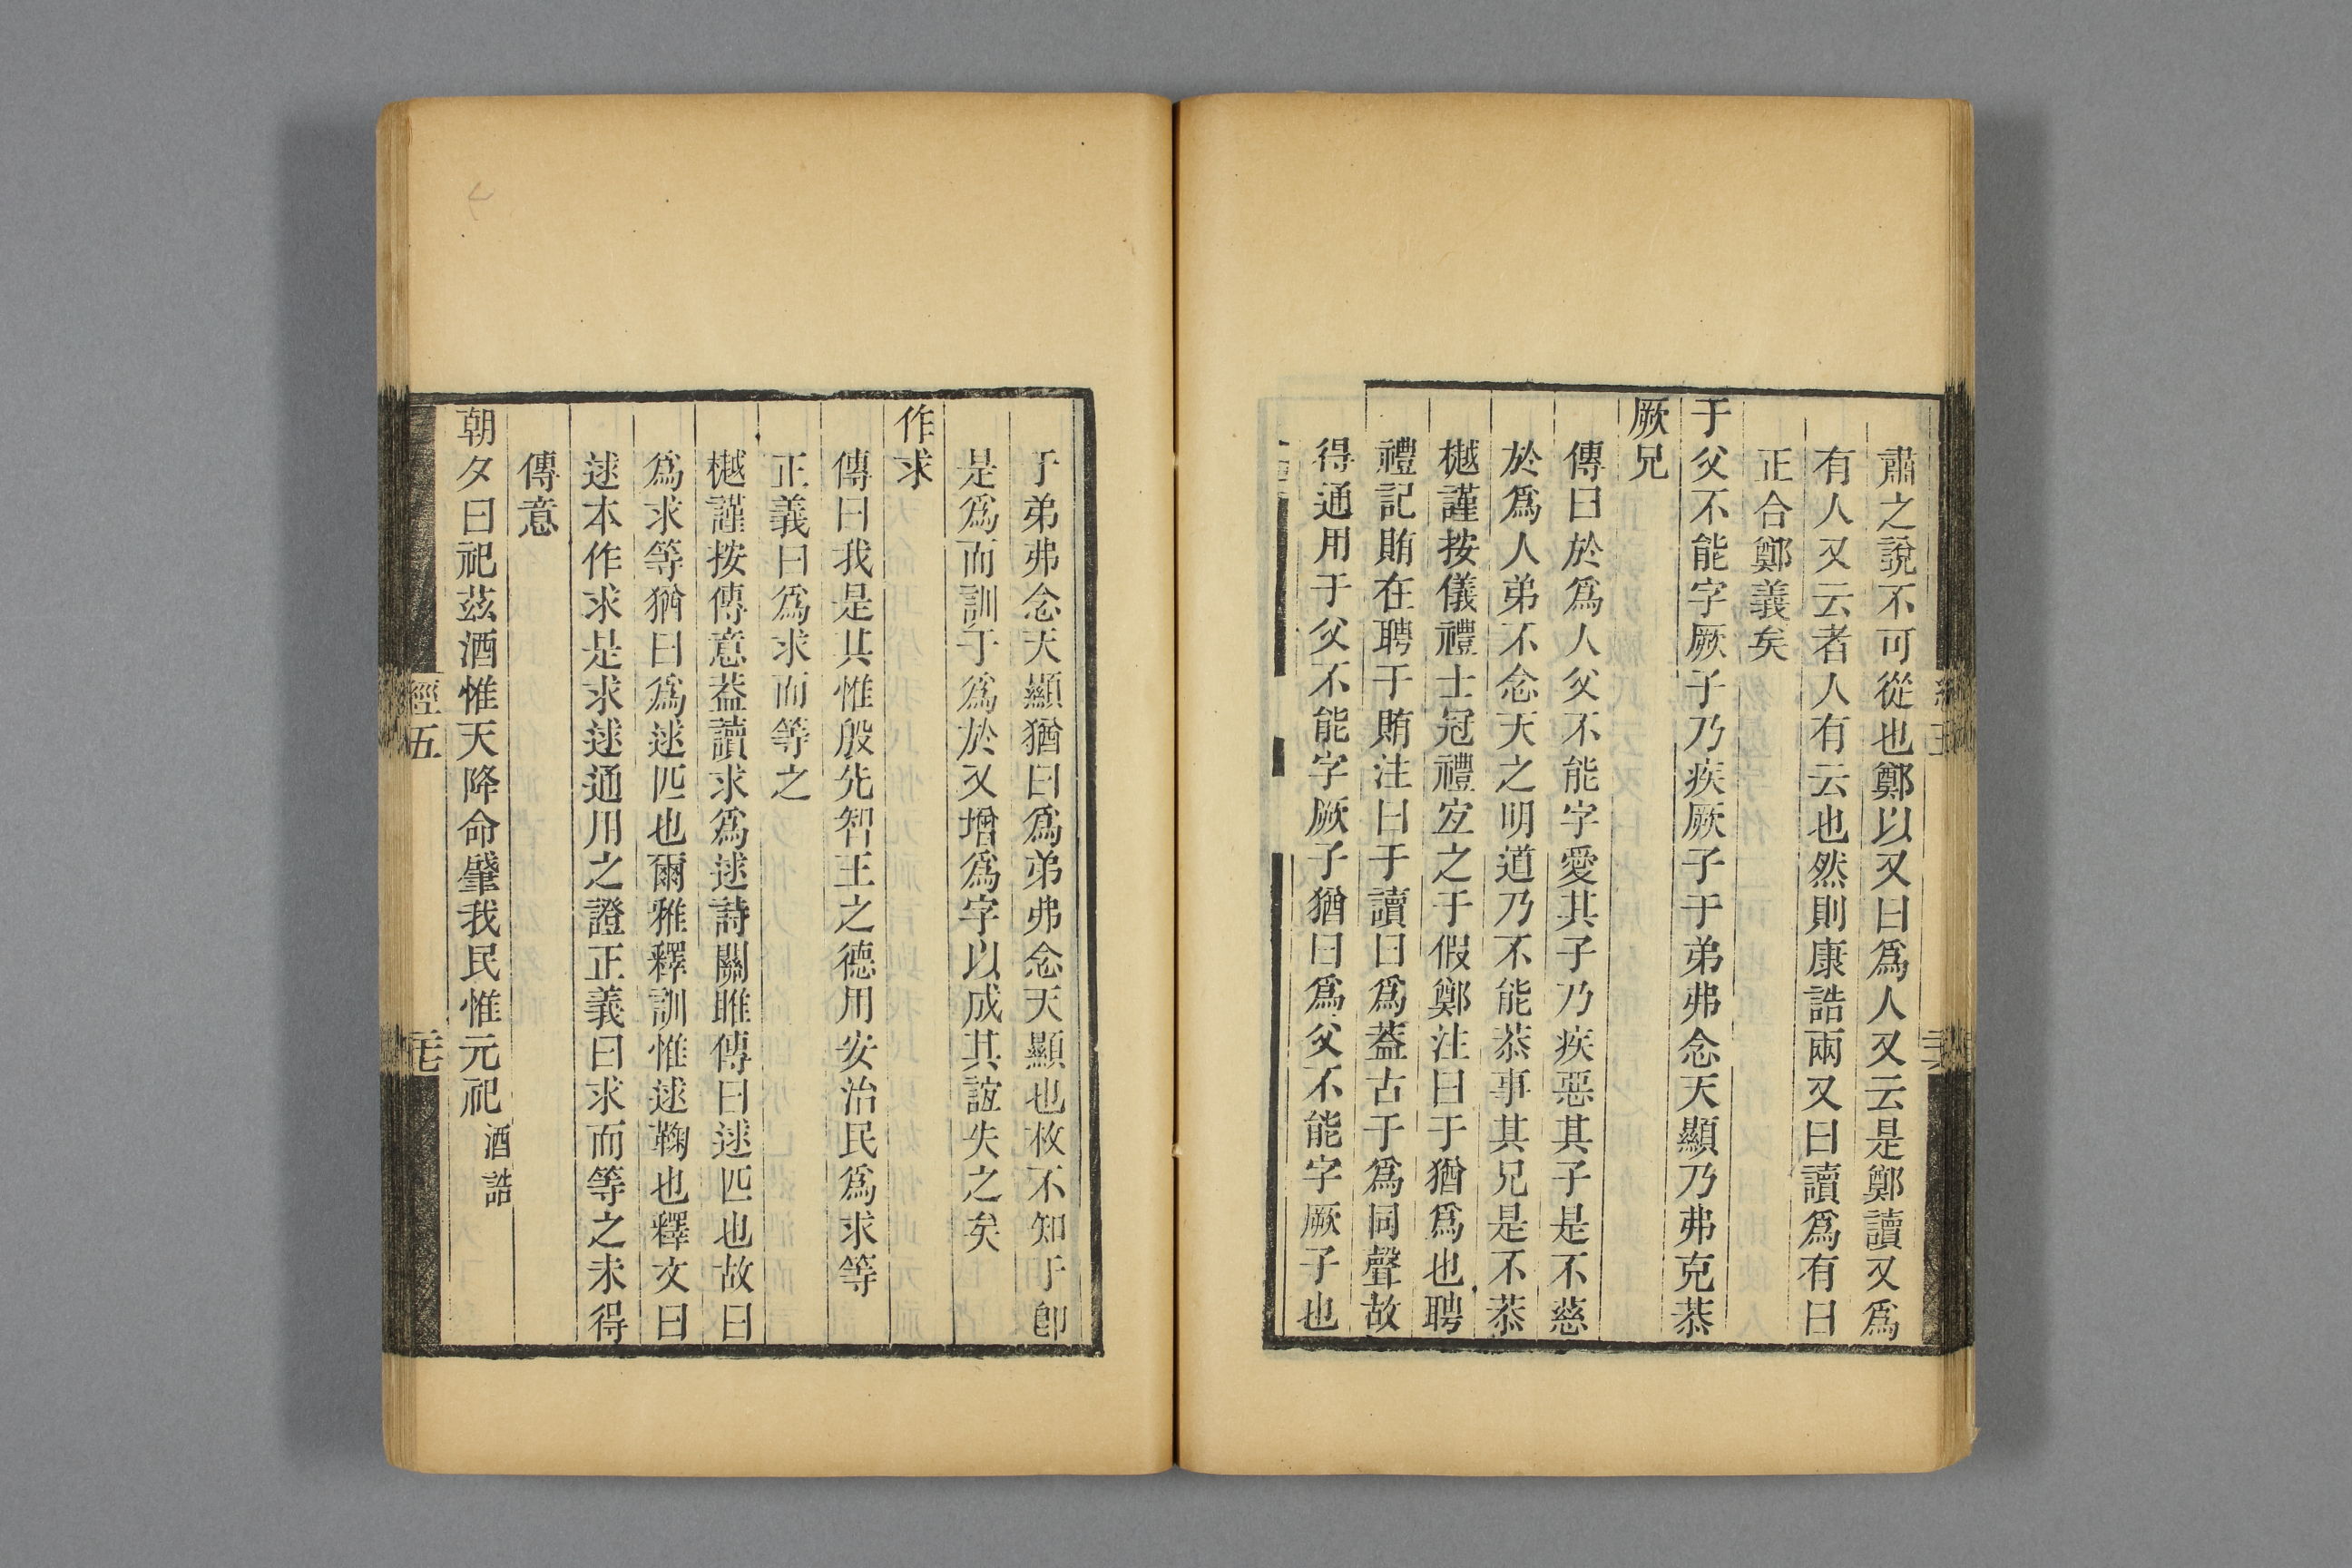 肅之說不可從也鄭以又曰爲人又云是鄭讀又爲
有人又云者人有云也然則康誥兩又曰讀爲有曰
正合鄭義矣
于父不能字厥子乃疾厥子于弟弗念天顯乃弗克恭
厥兄
傳曰於爲人父不能字愛其子乃疾惡其子是不慈
於爲人弟不念天之明道乃不能恭事其兄是不恭
樾謹按儀禮士冠禮宜之于假鄭注曰于猶爲也聘
禮記賄在聘于賄注曰于讀曰爲葢古于爲同聲故
得通用于父不能字厥子猶曰爲父不能字厥子也
于弟弗念天顯猶曰爲弟弗念天顯也枚不知于卽
是爲而訓于爲於又增爲字以成其誼失之矣
作求
傳曰我是其惟殷先智王之德用安治民爲求等
正義曰爲求而等之
樾謹按傳意葢讀求爲逑詩關雎傳曰逑匹也故曰
爲求等猶曰爲逑匹也爾雅釋訓惟逑鞠也釋文曰
逑本作求是求逑通用之證正義曰求而等之未得
傳意
朝夕曰祀茲酒惟天降命肇我民惟元祀酒誥
經五